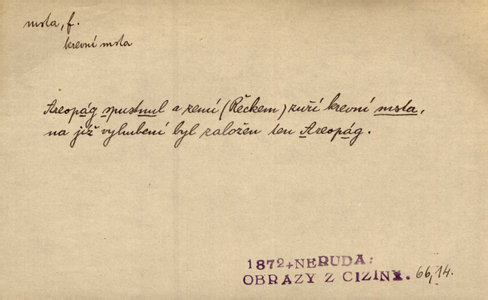 msta, f.
krevní msta
Areopág spustnul a zemí (Řeckem) zuří krevní msta,
na jíž vyhubení byl založen ten Areopág.
1872+NERUDA:
OBRAZY Z CIZINY. 66,14.